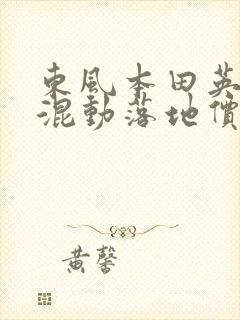 東風本田英
混動落地價
黃馨